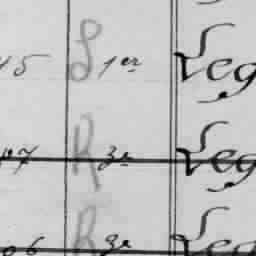 45 S 1er Leg
07 R 3e Leg
06 R 3e Leg